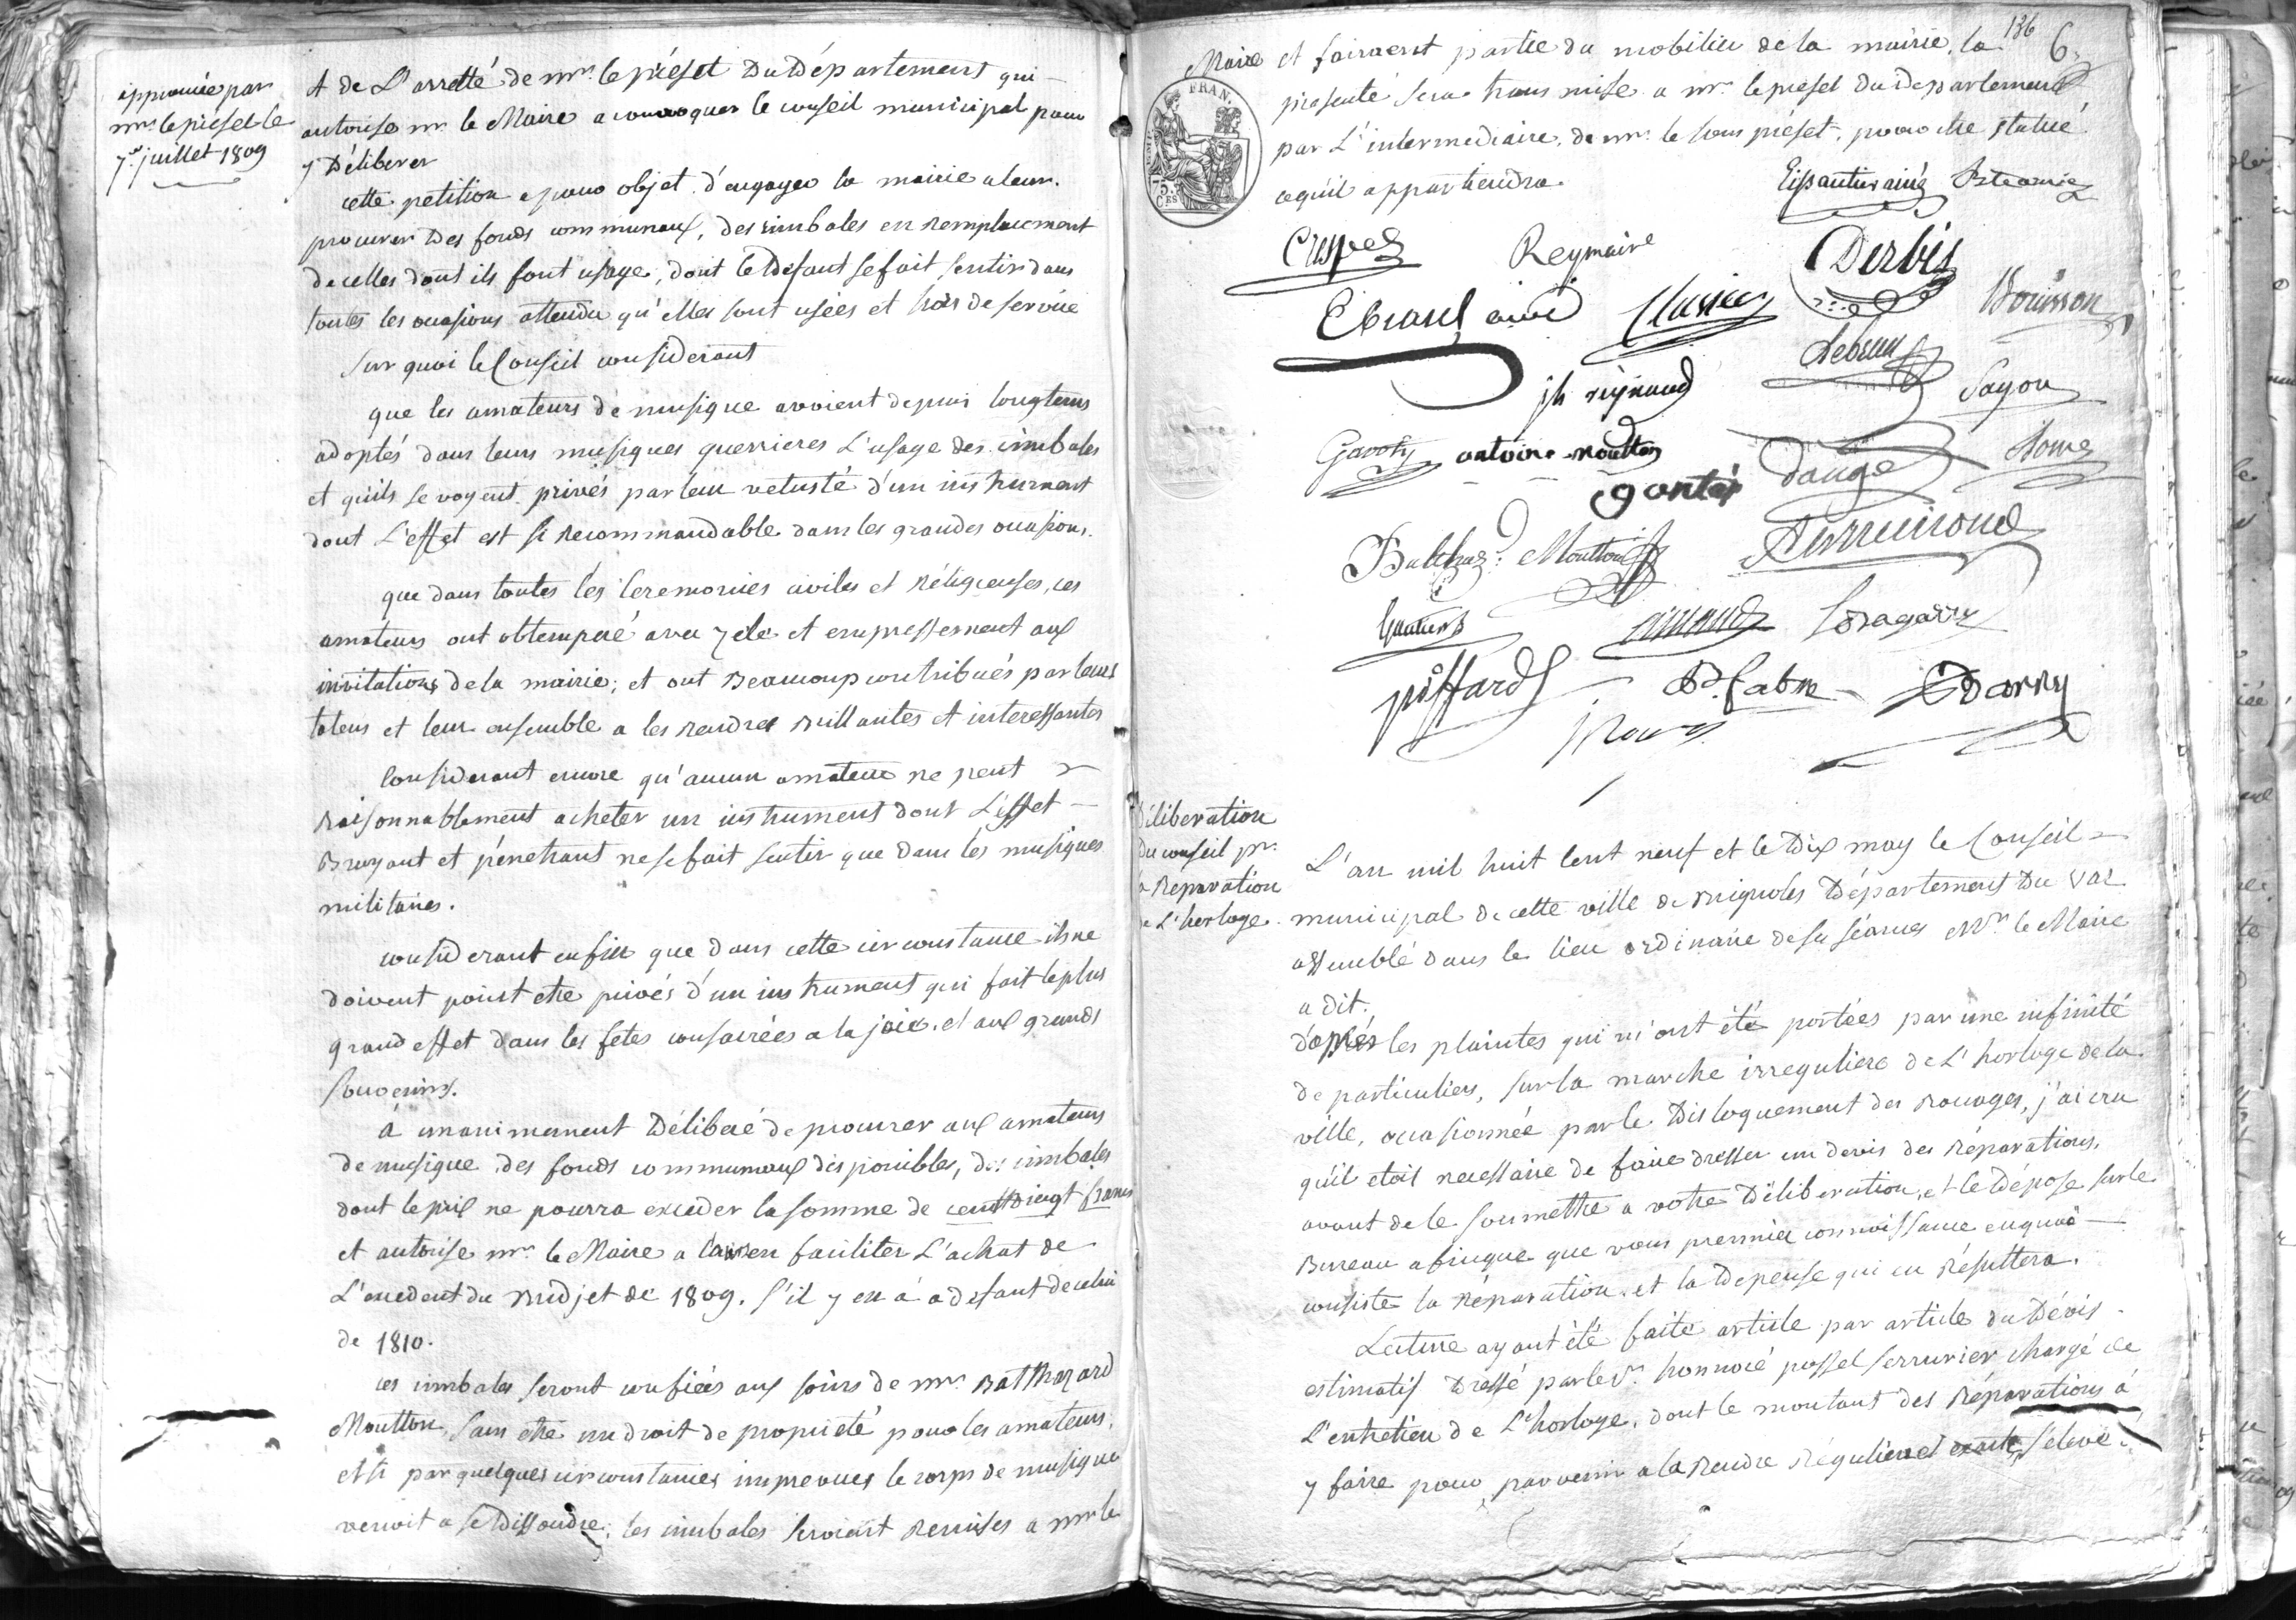 approuvée par
mr. le préfet le
7.er juillet 1809
et de L'arretté de mr. le préfet Du Département qui
autorise mr. le Maire a convoquer le conseil municipal pour
y Déliberer
cette petition a pour objet d'engager la mairie a leur
procurer des fonds communaux, des cimbales en remplacement
de celles dont ils font usage, dont le Défaut se fait sentir dans
toutes les occasions attendu qu'elles sont usées et hors de service
Sur quoi le Conseil considerant
que les amateurs de musique avoient depuis longtems
adoptés dans leurs musiques guerrieres L'usage des cimbales
et qu'ils se voyent privés par leur vetusté d'un instrument
dont L'effet est si recommandable dans les grandes occasions.
que dans toutes les Ceremonies civiles et réligieuses, ces
amateurs ont obtemperé avec zele et empressement aux
invitations de la mairie; et ont Beaucoup contribués par leurs
talens et leur ensemble a les rendre Brillantes et interessantes
Considerant encore qu'aucun amateur ne peut
raisonnablement acheter un instrument dont L'effet
Bruyant et pénetrant ne se fait sentir que dans les musiques
militaires.
considerant enfin que dans cette circonstance ils ne
doivent point etre privés d'un instrument qui fait le plus
grand effet dans les fetes consacrées a la joie et aux grands
souvenirs.
á unanimement Déliberé de procurer aux amateurs
de musique des fonds communaux disponibles, des cimbales
dont le prix ne pourra exceder la somme de cent vingt francs
et autorise mr. le Maire a en faciliter L'achat de
L'excedent du Budjet de 1809. S'il y en à a defaut de celui
de 1810.
ces cimbales seront confiées aux soins de mr. Balthazard
Moutton, sans etre un droit de proprieté pour les amateurs,
et si par quelques circonstances imprevues le corps de musique
venoit a se Dissoudre, les cimbales seroient remises a mr. le
136 6.
Maire et fairoient partie du mobilier de la mairie, la
presente sera transmise a mr. le prefet Du Departement
par L'intermediaire de mr. le sous préfet, pour etre statué
ce qu'il appartiendra.
FRAN.
75. CES
Eissautier ainé
Crespel Reymoire Derbés
Ebrard ainé Bouisson
Lebrun
jh reynaud Fayou
Gavoty antoine moutton
gantés Dauge
Balthaz.d Moutton
piffard Bd. fabre Darry
Déliberation
Du conseil pr.
la Reparation
de L'horloge.
L'an mil huit Cent neuf et le Dix may le Conseil
municipal de cette ville de Brignoles Département Du Var
assemblé dans le lieu ordinaire de sa séances Mr. le Maire
a dit.
d'aprés les plaintes qui m'ont été portées par une infinité
de particuliers, sur la marche irreguliere de L'horloge de la
ville, occasionnée par le Disloquement des rouages, j'ai cru
qu'il etoit necessaire de faire dresser un devis des réparations,
avant de le soumettre a votre Déliberation, et le Dépose sur le
Bureau afinque que vous premiez connoissance en quoi
consiste la réparation, et la Depense qui en résultera.
Lecture ayant été faite article par article du Dévis
estimatif Dressé par le Sr. honnoré possel serrurier chargé de
L'entretien de L'horloge, dont le montant des réparations á
y faire pour parvenir a la rendre réguliere et exacte, s'eleve